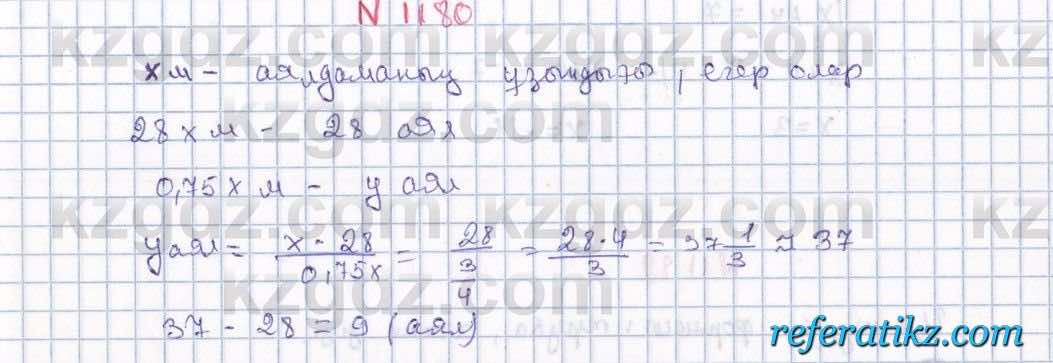 N 1180
x м - аялдаманың ұзындығы, егер олар
28 x м - 28 аял
0,75 x м - y аял
y аял = x · 28 / 0,75x = 28 / 3/4 = 28·4 / 3 = 37 1/3 ≈ 37
37 - 28 = 9 (аял)
kzgdz.com
referatikz.com